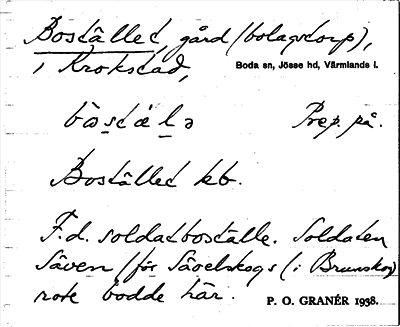 Bostället, gård (bolagstorp),
i Krokstad, Boda sn, Jösse hd, Värmlands l.
Prep. på.
Bostället kb.
F.d. soldatboställe. Soldaten
Säven (för Sävelskogs (i Brunskog)
rote bodde här. P. O. GRANÉR 1938.